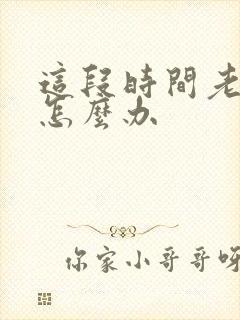 這段時間老
怎麼办
你家小哥哥呀